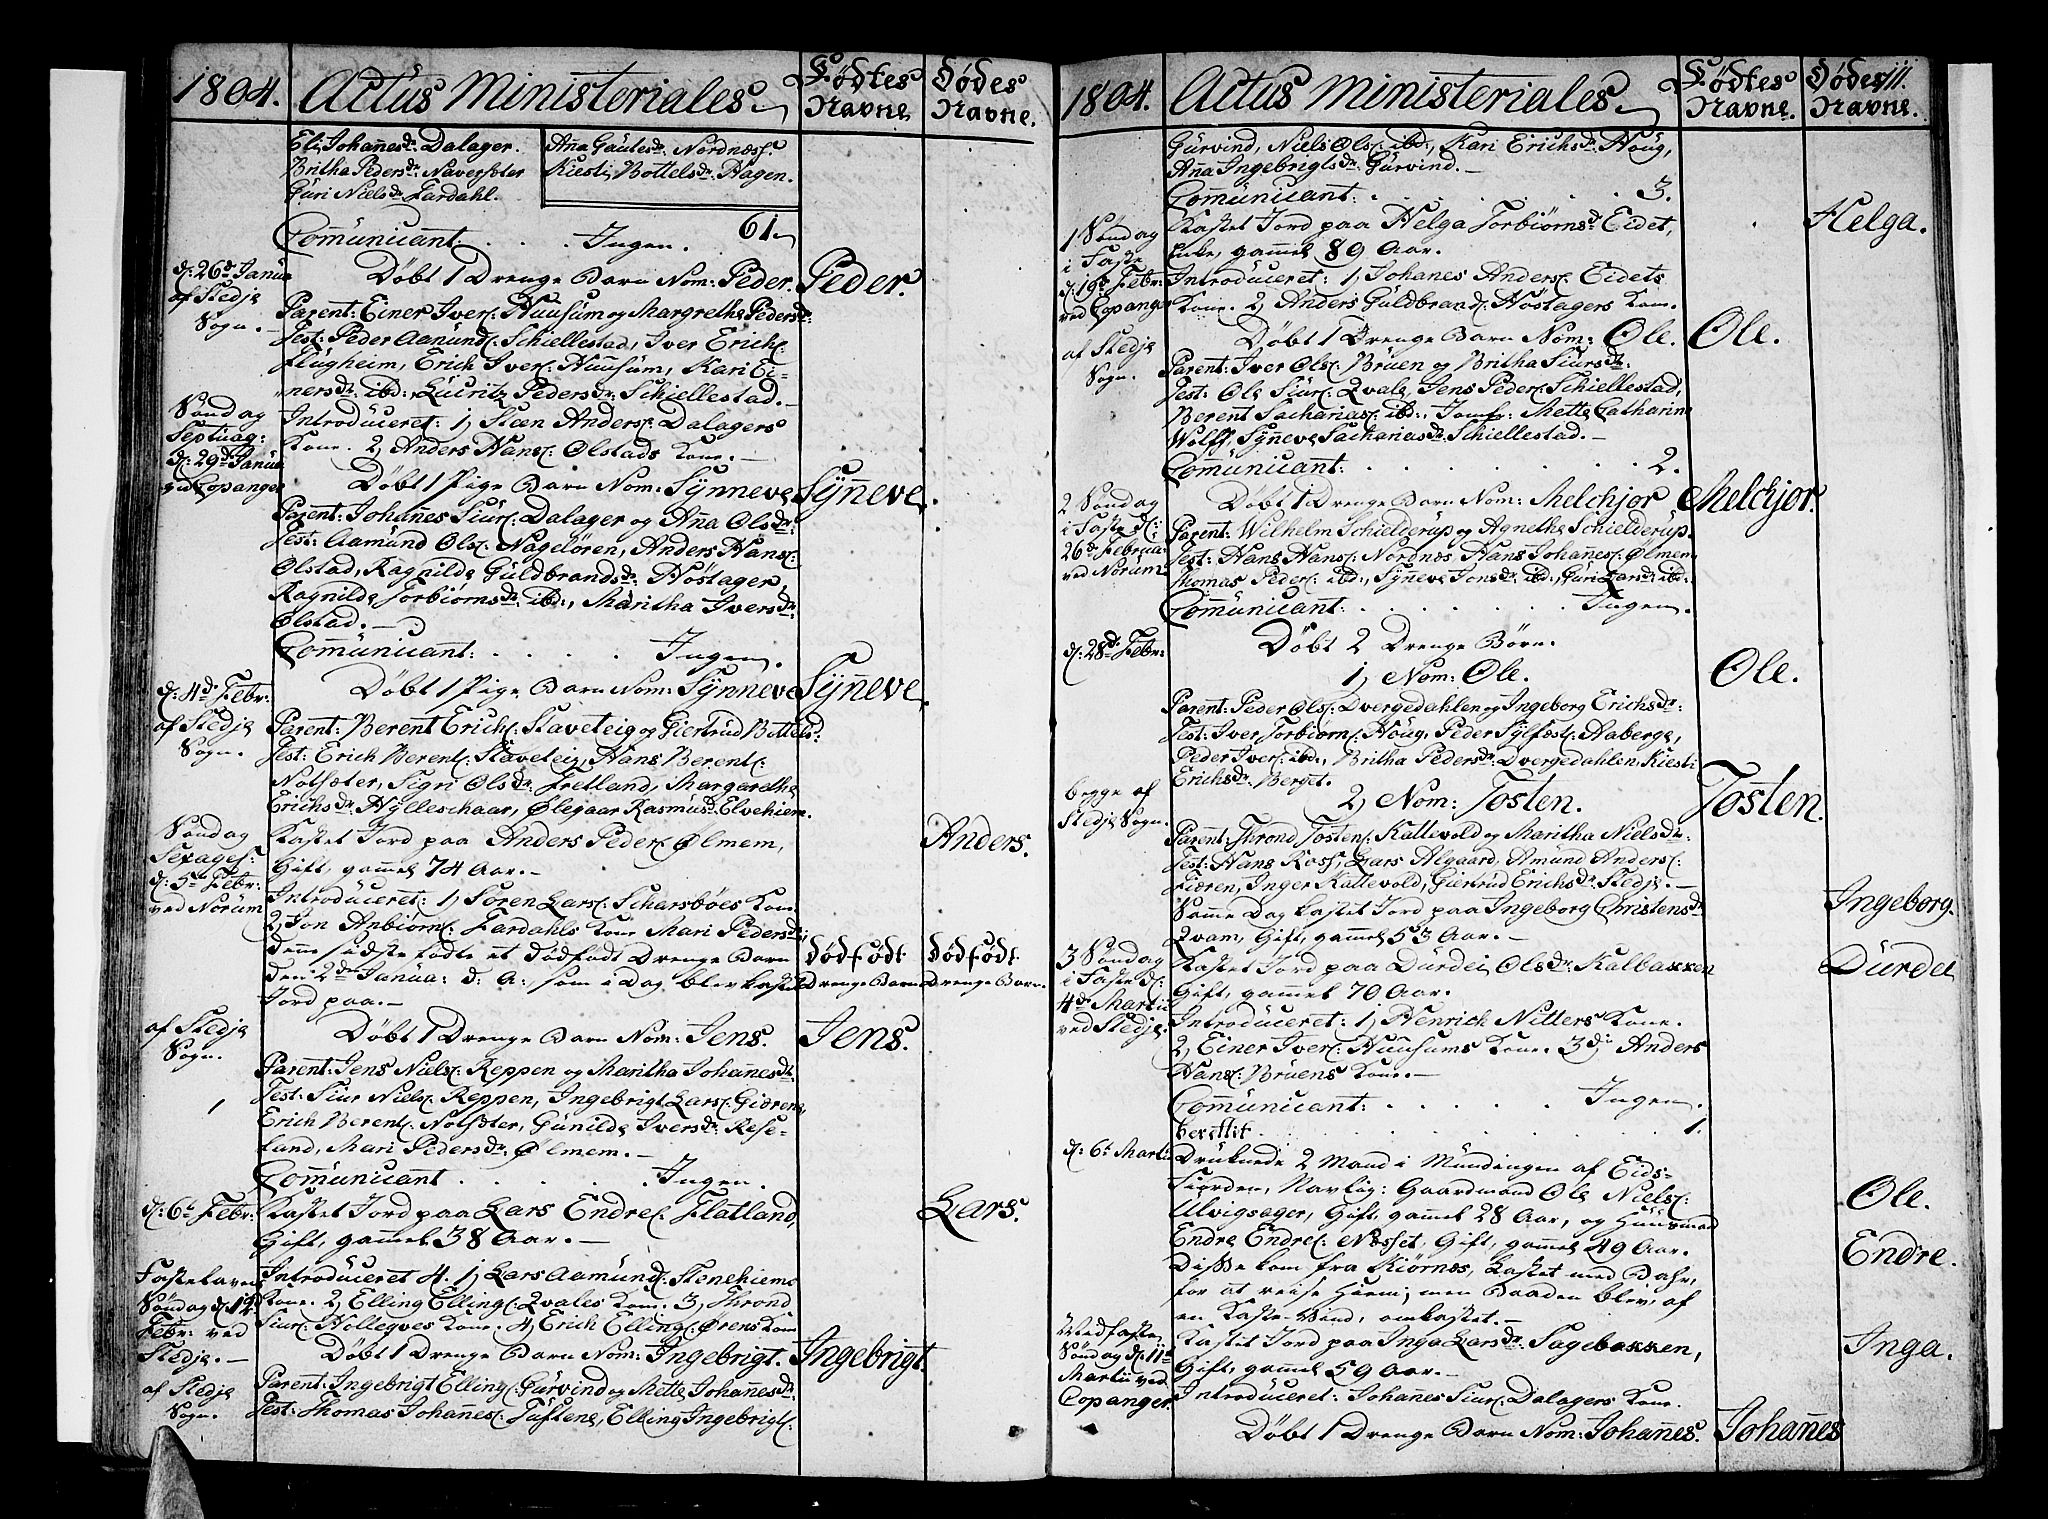 1804. Actus Ministeriales. Födtes Navne Dödes Navne.
Eli Johañesdr: Dalager. Aña Gautesdr: Nordnæss.
Britha Pedersdr: Naversæter Kiesti Bottelsdr: Hagen.
Guri Nielsdr Fardahl.
61
Com̃unicant: . . . Ingen.
d: 26d Janua af Stedje Sogn.
Döbt 1 Drenge Barn Nom: Peder. Peder.
Parent: Einer Ivers: Huusum og Margrethe Pedersdr:
Test: Peder Aamunds: Schiellestad, Iver Erichs:
Flugheim, Erich Ivers: Huusum, Kari Ei-
nersdr: ibd:, Lucritz Pedersdr: Schiellestad.
Söndag Septuag: d: 29d Janua ved Copanger
Introduceret: 1, Steen Anders: Dalagers
Kone. 2, Anders Hans: Ølstads Kone.
Döbt 1 Pige Barn Nom: Sÿnneve Sÿn̄eve.
Parent: Johañes Siurs: Dalager og Aña Olsdr:
Test: Aamund Ols: Nagelören, Anders Hans:
Ølstad, Ragnilde Guldbrandsdr: Höstager,
Ragnilde Torbiörnsdr: ibd:, Maritha Iversdr:
Ølstad.
Com̃unicant: . . . . Ingen.
d: 4d Febr: af Stedje Sogn.
Döbt 1 Pige Barn Nom: Sÿnneve Sÿn̄eve.
Parent: Berent Erichs: Staveteig og Giertrud Bottelsd:
Test: Erich Berents: Staveteig, Hans Berents:
Notsæter, Sigri Olsdr: Fretland, Margaretha
Erichsdr: Hÿlleschaar, Ølegaar Rasmusd: Elvehiem.
Söndag Sexages: d: 5te Febr: ved Norum
Kastet Jord paa Anders Peders: Ølmem, Anders.
Gift, gam̃el 74 Aar.
Introduceret: 1, Sören Lars: Scharsböes Kone.
2, Jon Anbiörns: Fardahls Kone Mari Pedersdr:,
den̄e sidste födte et dödfödt Drenge Barn Dödfödt Drenge Barn Dödfödt Drenge Barn.
den 2den Janua: d: A: som i Dag blev kastet
Jord paa.
af Stedje Sogn.
Döbt 1 Drenge Barn Nom: Jens. Jens.
Parent: Jens Niels: Reppen og Maritha Johanesdr:
Test: Siur Niels: Reppen, Ingebrigt Lars: Gieren,
Erich Berents: Notsæter, Gunilde Iversdr: Rise-
land, Mari Pedersdr: Ølmem.
Com̃unicant . . . . Ingen.
d: 6te Febr:
Kastet Jord paa Lars Endres: Flatland, Lars.
Gift, gam̃el 38 Aar.
Fastelavns Söndag d: 12te Febr: ved Stedje.
Introduceret 4. 1, Lars Aamunds: Stenehiems
Kone. 2, Elling Ellings: Qvales Kone. 3, Thrond
Siurs: Hollegves Kone. 4, Erich Ellings: Ørens Kone
af Stedje Sogn.
Döbt 1 Drenge Barn Nom: Ingebrigt. Ingebrigt
Parent: Ingebrigt Ellings: Gurvind og Mette Johañesdr:
Test: Thomas Johañes: Tuftene, Elling Ingebrigts:
1804. Actus Ministeriales. Födtes Navne. Dödes Navne. 111.
Gurvind, Niels Ols: ibd:, Kari Erichsdr: Houg,
Aña Ingebrigtsdr: Gurvind.
Com̃unicant: . . . . . 3.
1 Söndag i Faste d: 19de Febr: ved Copanger
Kastet Jord paa Helga Torbiörnsd: Eidet, Helga.
Enke, gam̃el 89 Aar.
Introduceret: 1, Johanes Anders: Eidets
Kone. 2, Anders Guldbrands: Höstagers Kone.
af Stedje Sogn.
Döbt 1 Drenge Barn Nom: Ole. Ole.
Parent: Iver Ols: Bruen og Britha Siursdr:
Test: Ole Siurs: Qvale, Jens Peders: Schiellestad,
Berent Sacharias: ibd:, Jomfr: Mette Catharina
Wolff, Sÿneve Sachariasdr: Schiellestad.
Com̃unicant: . . . . . . 2.
2 Söndag i Faste d: 26de Februa: ved Norum
Döbt 1 Drenge Barn Nom: Melchjor Melchjor.
Parent: Wilhelm Schielderup og Agnethe Schielderup.
Test: Hans Hans: Nordnæs, Hans Johanes: Ølmem
Thomas Peders: ibd:, Sÿneve Jensdr: ibd:, Guri Larsdr: ibd:
Com̃unicant: . . . . . . Ingen.
d: 28de Febr:
Döbt 2 Drenge Börn.
1, Nom: Ole. Ole.
Parent: Peder Ols: Dvergedahlen og Ingeborg Erichsdr:
Test: Iver Torbiörns: Houg, Peder Sÿlfæst: Aaberge,
Peder Ivers: ibd:, Britha Pedersdr: Dvergedahlen, Kiesti
Erichsdr: Berget.
begge af Stedje Sogn.
2, Nom: Tosten. Tosten.
Parent: Thrond Tostens: Kattevold og Maritha Nielsdr:
Test: Hans Ross, Lars Algaard, Amund Anders:
Fieren, Inger Kattevold, Giertrud Erichsdr: Stedje.
Sam̃e Dag kastet Jord paa Ingeborg Christensdr Ingeborg.
Qvam, Gift, gam̃el 53 Aar.
3 Söndag i Faste d: 4de Martii ved Stedje.
Kastet Jord paa Durdei Olsdr: Kalbakken Durdei
Gift, gam̃el 70 Aar.
Introduceret: 1, Henrich Nitters Kone.
2, Einer Ivers: Huusums Kone. 3di Anders
Hans: Bruens Kone.
Com̃unicant: . . . . . Ingen.
berettit . . . . . . 1.
d: 6te Marti
Druknede 2 Mand i Mundingen af Eids-
Fiorden, Navlig: Gaardmand Ole Niels: Ole.
Alvigsager, Gift, gam̃el 28 Aar, og Huusmand
Endre Endres: Næsset, Gift, gam̃el 49 Aar. Endre.
Disse kom fra Kiörnes, Lastet med Bahr,
for at reise Hiem; men Baaden blev af
en Kaste-Vind, omkastet.
Midfaste Söndag d: 11te Martii ved Copanger.
Kastet Jord paa Inga Larsdr: Sagebakken, Inga.
Gift, gam̃el 59 Aar.
Introduceret: Johañes Siurs: Dalagers Kone.
Döbt 1 Drenge Barn Nom: Johañes. Johañes